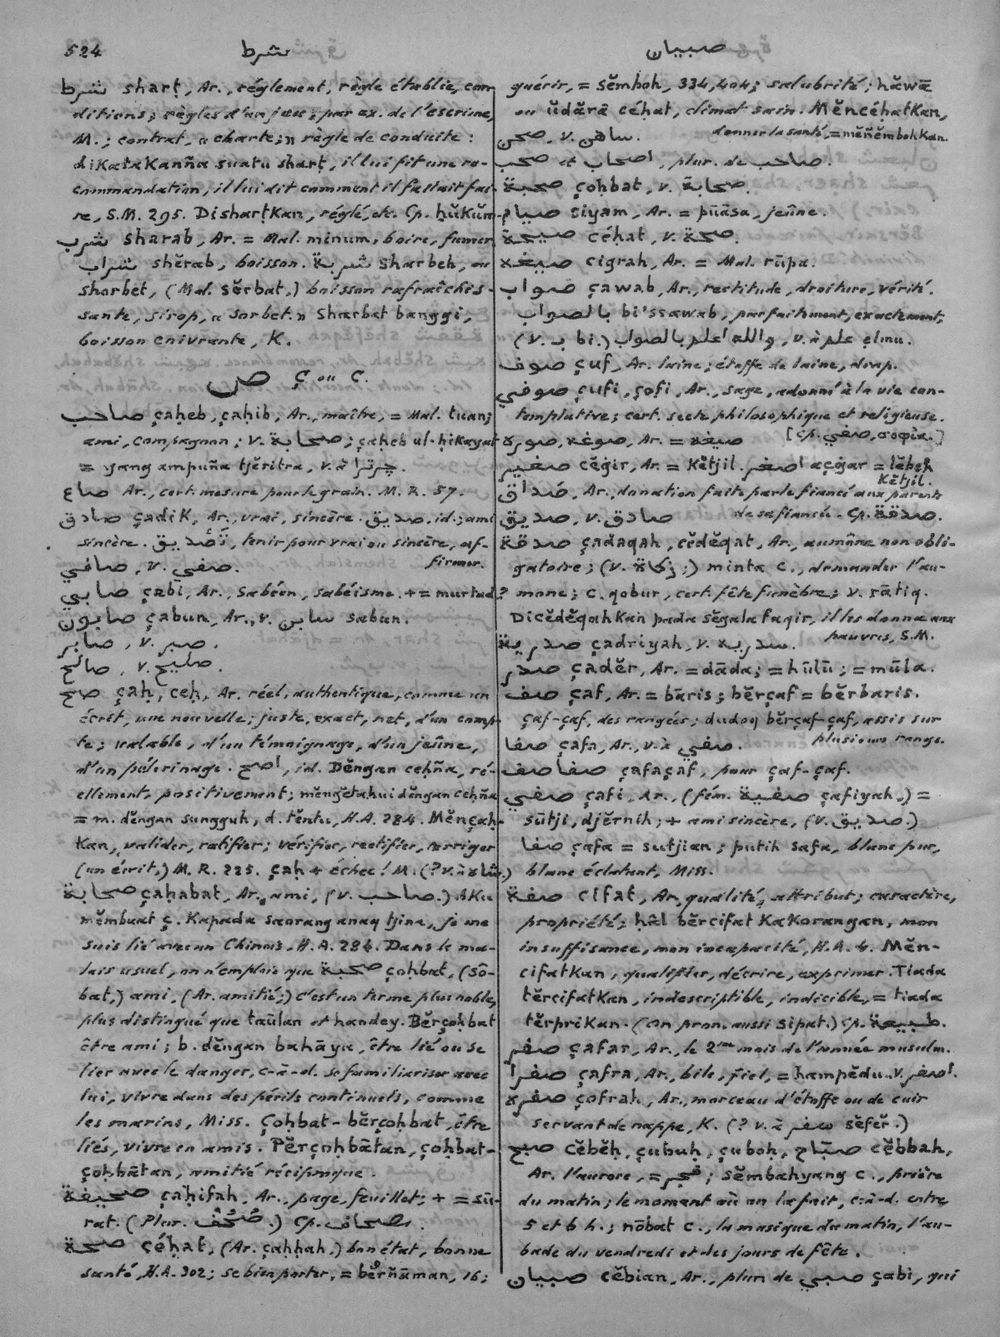 524
شرط
صبيان
شرط sharṭ, Ar., réglement, règle établie, con-
ditions; règles d'un jeu; par ex. de l'escrime,
M.; contrat, « charte; » règle de conduite:
diKataKanña suatu sharṭ, il lui fit une re-
commandation, il lui dit comment il fallait fai-
re, S.M. 295. DisharṭKan, réglé, etc. Cp. hŭkŭm.
شرب sharab, Ar. = Mal. minum, boire, fumer.
شراب shĕrab, boisson. شربة sharbeh, ou
sharbet, (Mal. sĕrbat,) boisson rafraîchis-
sante, sirop, « sorbet. » sharbat banggi,
boisson enivrante, K.
ص Ç ou ç.
صاحب çaḥeb, çaḥib, Ar., maître, = Mal. tuan;
ami, compagnon; v. صحابة; çaḥeb ul-ḥiKayat
= yang ampuña tjĕritra, v. à چرترا.
صاع Ar., cert. mesure pour le grain. M.R. 57.
صادق çadiK, Ar., vrai, sincère. صديق, id.; ami
sincère. تصديق, tenir pour vrai ou sincère, af-
firmer.
صافي, v. صفي.
صابي çabi, Ar., Sabéen, sabéisme. + = murtad?
صابون çabun, Ar., v. سابن sabun.
صابر, v. صبر.
صالح, v. صليح.
صح çaḥ, ceḥ, Ar. réel, authentique, comme un
écrit, une nouvelle; juste, exact, net, d'un comp-
te; valable, d'un témoignage, d'un jeûne,
d'un pélerinage. اصح, id. Dĕngan ceḥña, ré-
ellement, positivement; mĕngĕtahui dĕngan ceḥña
= m. dĕngan sungguh, d. tĕntu, H.A. 284. Mĕnçaḥ-
Kan, valider, ratifier; vérifier, rectifier, corriger
(un écrit.) M.R. 225. çaḥ + échec! M. (? v. à شاه.)
صحابة çaḥabat, Ar., ami, (v. صاحب.) AKu
mĕmbuat ç. Kapada saorang anaq tjina, je me
suis lié avec un Chinois, H.A. 284. Dans le ma-
lais usuel, on n'emploie que صحبة çoḥbat, (sô-
bat,) ami, (Ar. amitié;) c'est un terme plus noble,
plus distingué que taūlan et handey. Bĕrçoḥbat
être ami; b. dĕngan bahāya, être lié ou se
lier avec le danger, c-à-d. se familiariser avec
lui, vivre dans des périls continuels, comme
les marins, Miss. Çoḥbat-bĕrçoḥbat, être
liés, vivre en amis. Pĕrçoḥbātan, çoḥbat-
çoḥbātan, amitié réciproque.
صحيفة çaḥifah, Ar., page, feuillet; + = sū-
rat. (Plur. صُحُف.) Cp. مصحاف.
صحة çéḥat, (Ar. çaḥḥah.) bon état, bonne
santé, H.A. 302; se bien porter, = bĕrñāman, 16;
guérir, = sĕmboh, 334, 404; salubrité; hăwā
ou ŭdārā céhat, climat sain. MĕncéhatKan,
donner la santé, = mĕñĕmbohKan.
صحن, v. ساهن.
صحب et اصحاب, plur. de صاحب.
صحبة çoḥbat, v. صحابة.
صيام siyam, Ar. = puāsa, jeûne.
صيحة céḥat, v. صحة.
صيغه cigrah, Ar. = Mal. rūpa.
صواب çawab, Ar., rectitude, droiture, vérité.
بالصواب bi'ssawab, parfaitment, exactement,
(v. ب bi.) والله اعلم بالصواب, v. à علم elmu.
صوف çuf, Ar. laine; étoffe de laine, drap.
صوفي çufi, çofi, Ar., sage, adonné à la vie con-
templative; cert. secte philosophique et religieuse.
[Cp. صفي, σοφία.]
صوغه, صوره, Ar. = صيغة
صغير cégir, Ar. = Kĕtjil. اصغر açgar = lĕbeh
Kĕtjil.
صداق, Ar., donation faite par le fiancé aux parents
de sa fiancée. Cp. صدقة.
صديق, v. صادق
صدقة çadaqah, cĕdĕqat, Ar., aumône non obli-
gatoire; (v. زكاة;) minta c., demander l'au-
mône; C. qobur, cert. fête funèbre; v. rātiq.
DicĕdĕqahKan pada sĕgala faqir, il les donna aux
pauvres, S.M.
صدرية çadriyah, v. سدريه.
صدر çadĕr, Ar. = dāda; = hūlū; = mūla.
صف çaf, Ar. = bāris; bĕrçaf = bĕrbaris.
çaf-çaf, des rangées; duduq bĕrçaf-çaf, assis sur
plusieurs rangs.
صفا çafa, Ar., v. à صفي.
صفاصف çafaçaf, pour çaf-çaf.
صفي çafi, Ar., (fém. صفية çafiyah,) =
sūtji, djĕrnih; + ami sincère, (v. صديق.)
صفا çafa = sutjian; putih safa, blanc pur,
blanc éclatant, Miss.
صفة cifat, Ar., qualité, attribut; caractère,
propriété; hāl bĕrcifat KaKorangan, mon
insuffisance, mon incapacité, H.A. 4. Mĕn-
cifatKan, qualifier, décrire, exprimer. Tiada
tĕrcifatKan, indescriptible, indicible, = tiada
tĕrpriKan. (On pron. aussi sipat.) Cp. طبيعة.
صفر çafar, Ar., le 2me mois de l'année musulm.
صفرا çafra, Ar., bile, fiel, = hampĕdu. v. اصفر.
صفره çofrah, Ar., morceau d'étoffe ou de cuir
servant de nappe, K. (? v. à سفر sĕfĕr.)
صبح cĕbĕḥ, çubuḥ, çuboḥ, صبّاح cĕbbah,
Ar. l'aurore, = فجر; sĕmbahyang c., prière
du matin; le moment où on la fait, c.-à-d. entre
5 et 6 h.; nōbat c., la musique du matin, l'au-
bade du vendredi et des jours de fête.
صبيان cĕbian, Ar., plur. de صبي çabi, qui